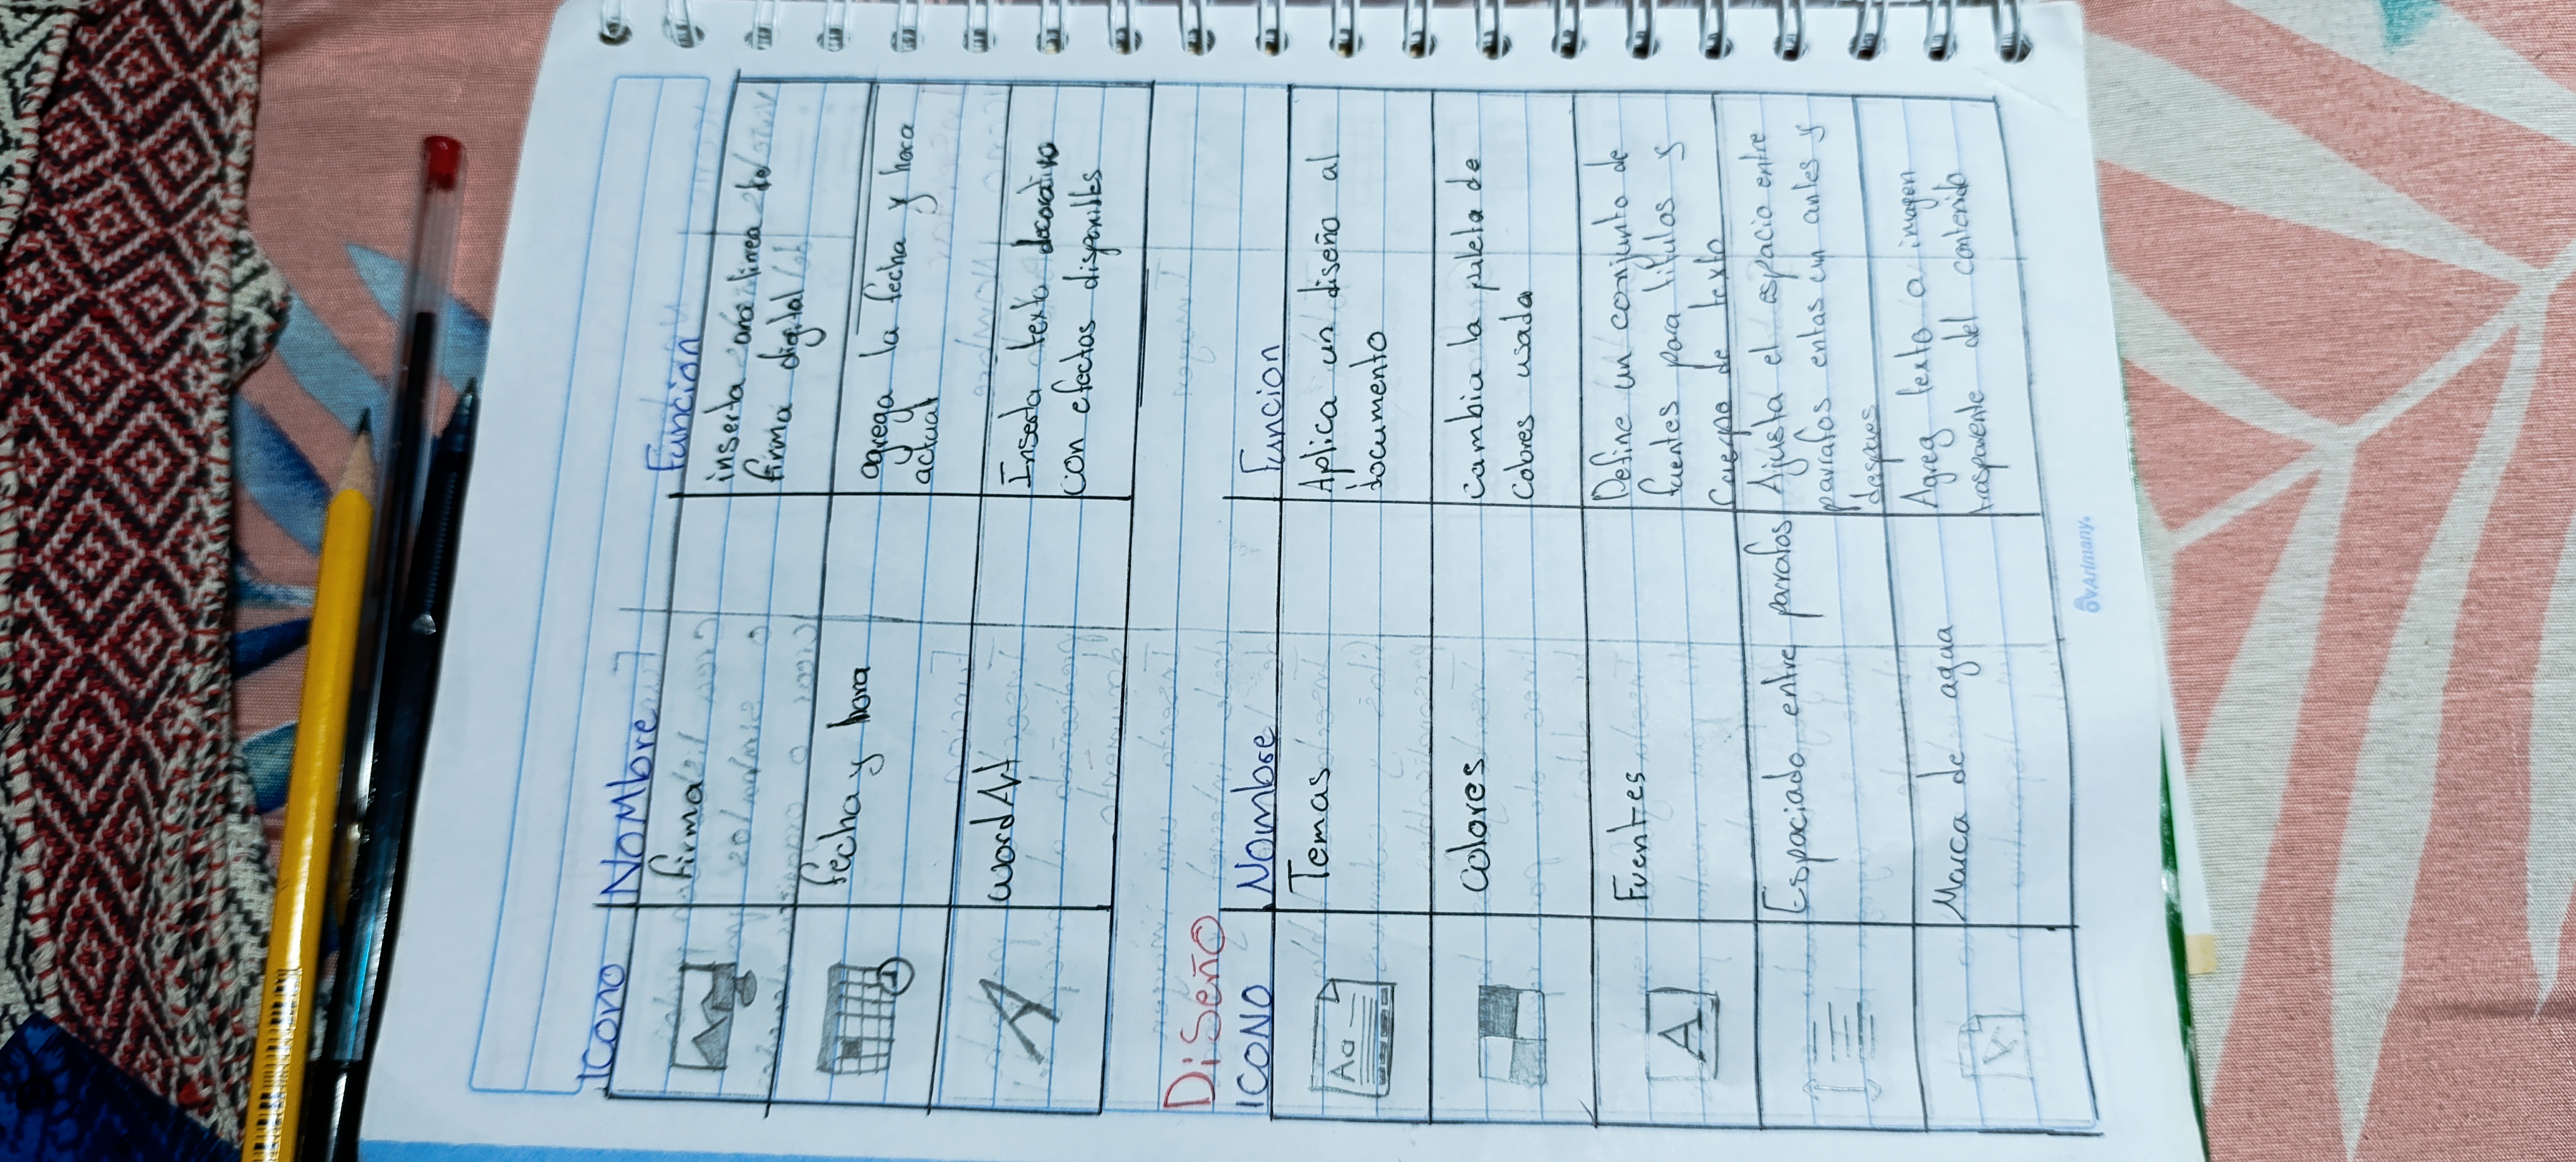 Icono Nombre Función
firma inserta una linea de
firma digital
fecha y hora agrega la fecha y hora
y
actual
WordArt Inserta texto decorativo
con efectos disponibles
Diseño
ICONO Nombre Funcion
Aa Temas Aplica un diseño al
documento
Colores Cambia la paleta de
colores usada
A Fuentes Define un conjunto de
fuentes para titulos y
cuerpo de texto
Espaciado entre parrafos Ajusta el espacio entre
parrafos antes y
despues
Marca de agua Agreg texto a imagen
trasparente del contenido
Arimany